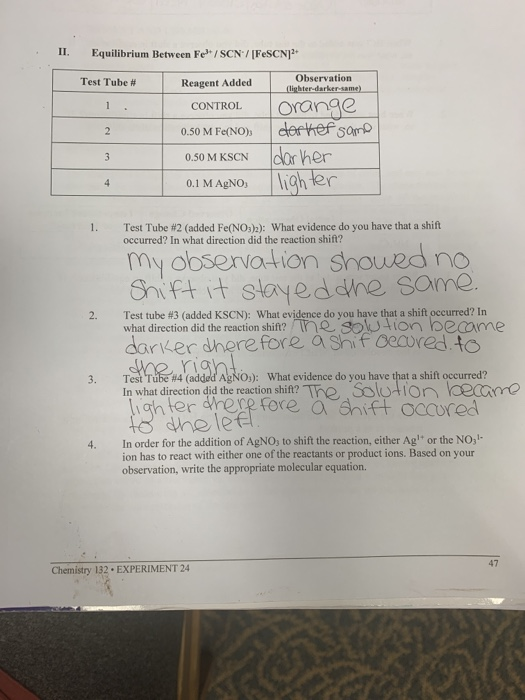 II. Equilibrium Between Fe³⁺ / SCN⁻ / [FeSCN]²⁺
Test Tube # Reagent Added Observation (lighter-darker-same)
1 CONTROL orange
2 0.50 M Fe(NO)₃ darker same
3 0.50 M KSCN darker
4 0.1 M AgNO₃ lighter
1. Test Tube #2 (added Fe(NO₃)₂): What evidence do you have that a shift
occurred? In what direction did the reaction shift?
my observation showed no
Shift it stayed the same.
2. Test tube #3 (added KSCN): What evidence do you have that a shift occurred? In
what direction did the reaction shift? The solution became
darker therefore a shif occured. to
the right
3. Test Tube #4 (added AgNO₃): What evidence do you have that a shift occurred?
In what direction did the reaction shift? The Solution became
lighter therefore a shift occured
to the left.
4. In order for the addition of AgNO₃ to shift the reaction, either Ag¹⁺ or the NO₃¹⁻
ion has to react with either one of the reactants or product ions. Based on your
observation, write the appropriate molecular equation.
Chemistry 132 • EXPERIMENT 24
47